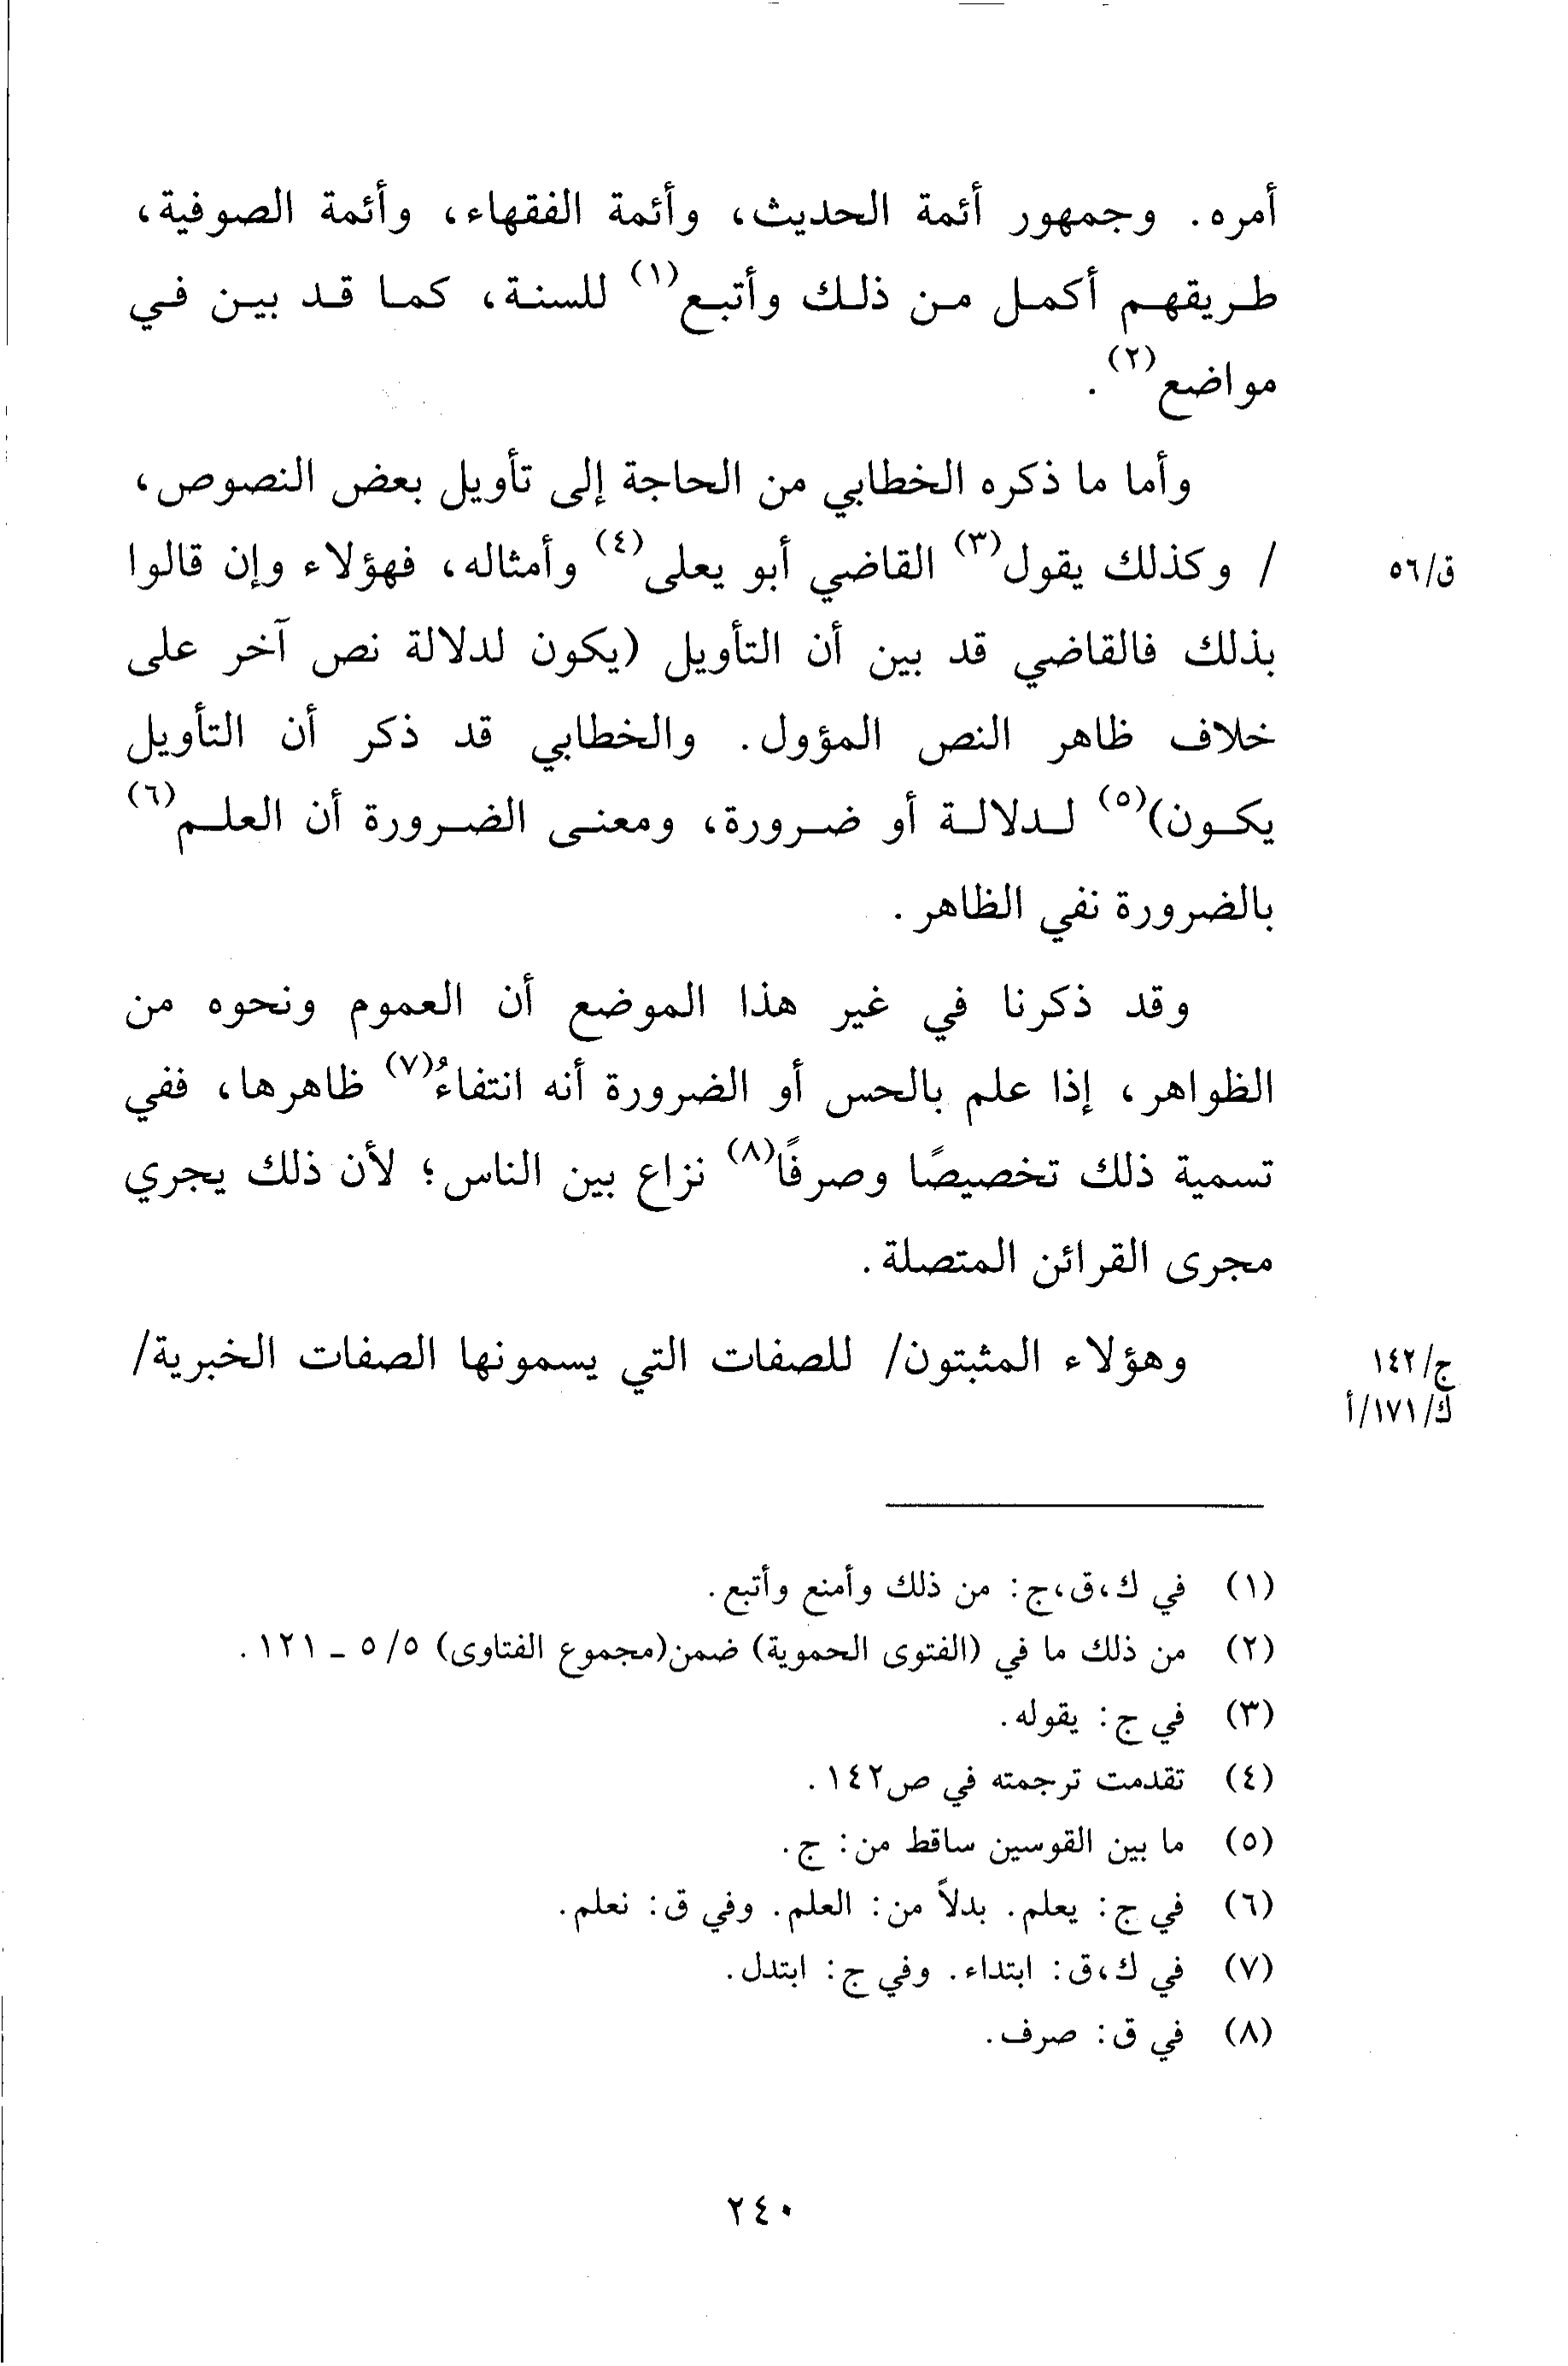 أمره. وجمهور أئمة الحديث، وأئمة الفقهاء، وأئمة الصوفية،
طريقهم أكمل من ذلك وأتبع(١) للسنة، كما قد بين في
مواضع(٢).
وأما ما ذكره الخطابي من الحاجة إلى تأويل بعض النصوص،
/ وكذلك يقول(٣) القاضي أبو يعلى(٤) وأمثاله، فهؤلاء وإن قالوا
ق/٥٦
بذلك فالقاضي قد بين أن التأويل (يكون لدلالة نص آخر على
خلاف ظاهر النص المؤول. والخطابي قد ذكر أن التأويل
يكون)(٥) لدلالة أو ضرورة، ومعنى الضرورة أن العلم(٦)
بالضرورة نفي الظاهر.
وقد ذكرنا في غير هذا الموضع أن العموم ونحوه من
الظواهر، إذا علم بالحس أو الضرورة أنه انتفاءُ(٧) ظاهرها، ففي
تسمية ذلك تخصيصًا وصرفًا(٨) نزاع بين الناس؛ لأن ذلك يجري
مجرى القرائن المتصلة.
وهؤلاء المثبتون/ للصفات التي يسمونها الصفات الخبرية/
ج/١٤٢
ك/١٧١/أ
(١) في ك،ق،ج: من ذلك وأمنع وأتبع.
(٢) من ذلك ما في (الفتوى الحموية) ضمن(مجموع الفتاوى) ٥/٥ - ١٢١.
(٣) في ج: يقوله.
(٤) تقدمت ترجمته في ص١٤٢.
(٥) ما بين القوسين ساقط من: ج.
(٦) في ج: يعلم. بدلاً من: العلم. وفي ق: نعلم.
(٧) في ك،ق: ابتداء. وفي ج: ابتدل.
(٨) في ق: صرف.
٢٤٠